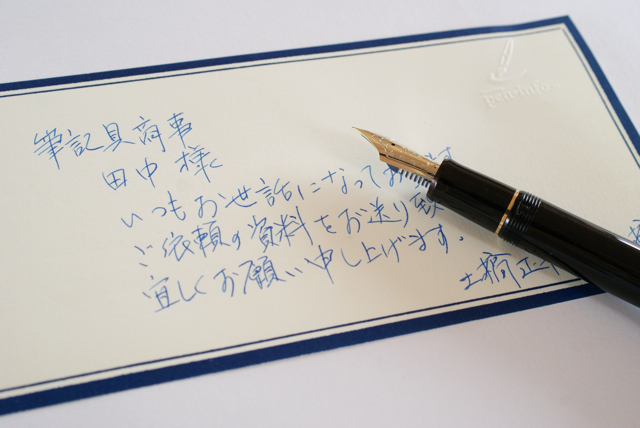 pen-info
筆記具商事
田中 様
いつもお世話になってお
ご依頼の資料をお送り致
宜しくお願い申し上げます。
土橋正